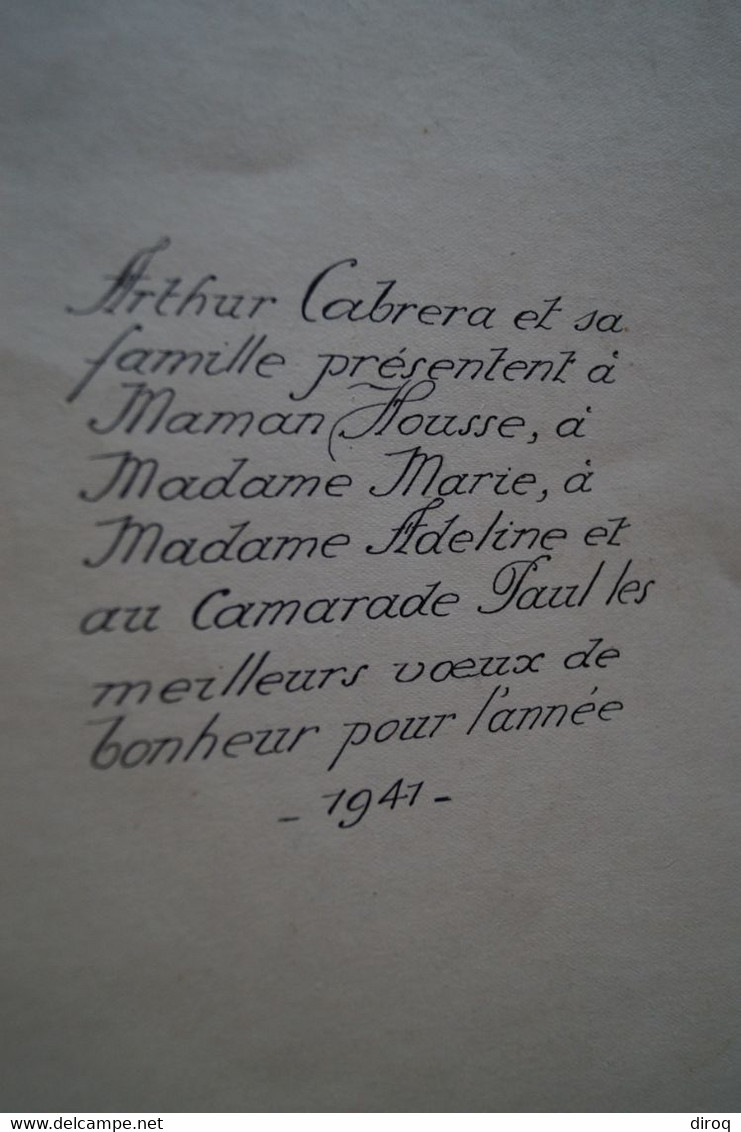 Arthur Cabrera et sa
famille présentent à
Maman Housse, à
Madame Marie, à
Madame Adeline et
au Camarade Paul les
meilleurs vœux de
bonheur pour l'année
- 1941 -
www.delcampe.net
diroq